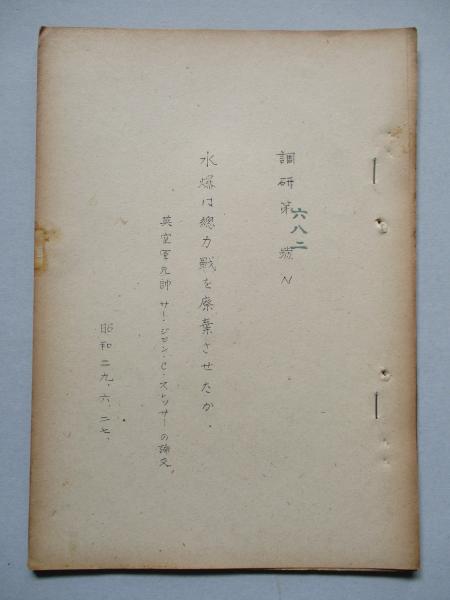 調研第六八二號N
水爆は總力戰を廃棄させたか.
英空軍元帥 サー・ジョン・C・スレッサーの論文
昭和二九、六、二七、